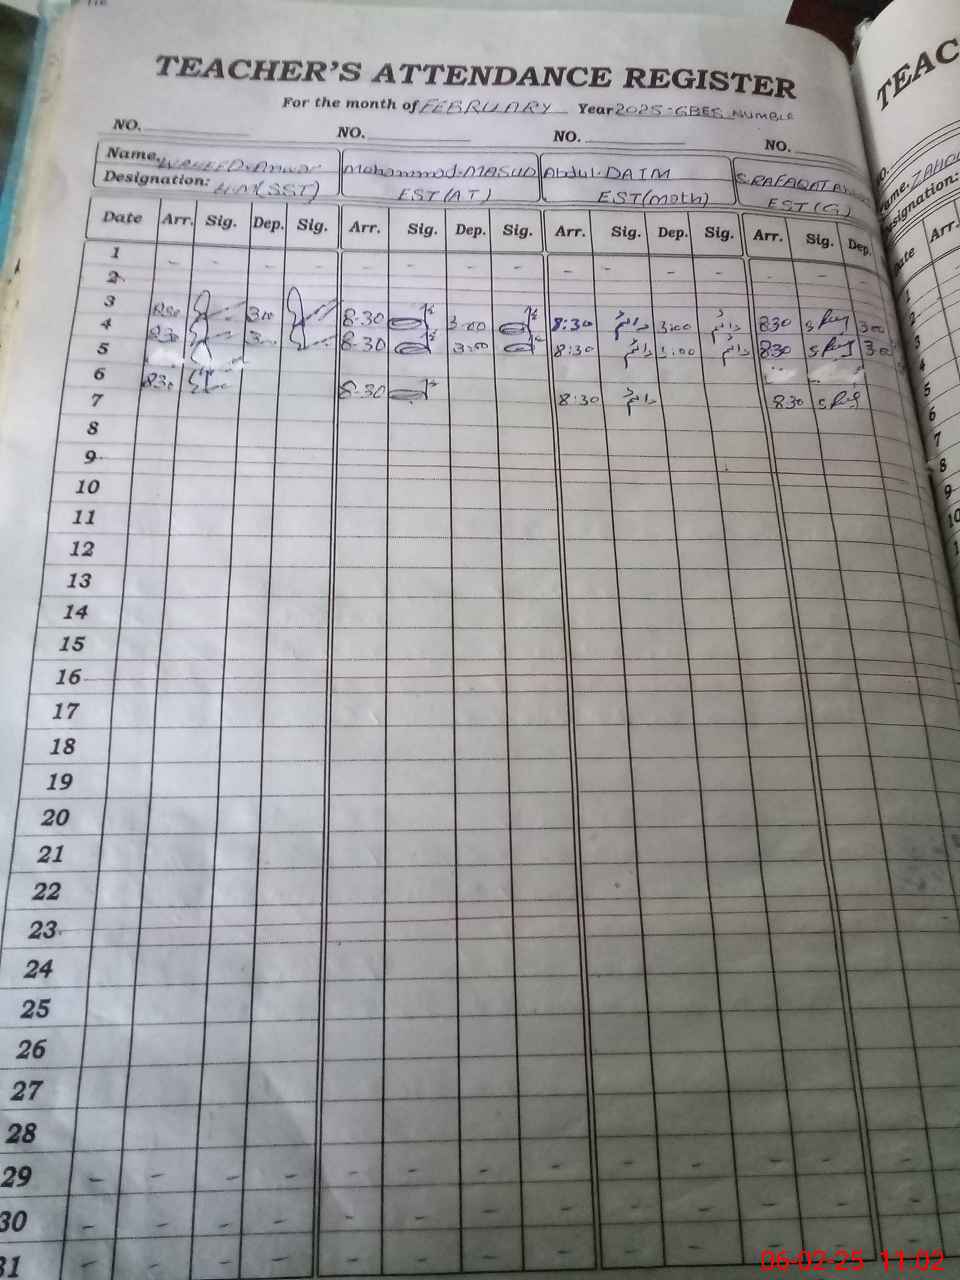 TEACHER'S ATTENDANCE REGISTER
For the month of FEBRUARY Year 2025-GBES NUMBLE
NO. NO. NO. NO.
Name. WAHEED Anwar Mohammad-MASUD Abdul-DAIM S.RAFAQAT
Designation: H.M(SST) EST(AT) EST(math) EST(G)
Date Arr. Sig. Dep. Sig. Arr. Sig. Dep. Sig. Arr. Sig. Dep. Sig. Arr. Sig. Dep.
1
2
3 830 300 8-30 3.00 8:30 دائم 3:00 دائم 830 300
4 830 8-30 3.00 8:30 دائم 3:00 دائم 830 300
5
6 830 8-30 8:30 دائم 830
7
8
9
10
11
12
13
14
15
16
17
18
19
20
21
22
23
24
25
26
27
28
29 - - - - - - - - - - - - - - -
30 - - - - - - - - - - - - - - -
31 - - - - - - - - - - - - - - -
TEAC
Name. ZAHO
Designation:
Date Arr.
1
2
3
4
5
6
7
8
9
10
06-02-25 11:02